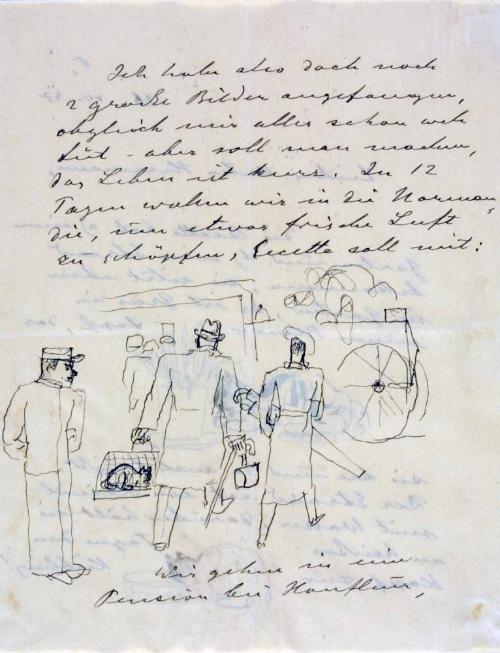 Ich habe also doch noch
2 große Bilder angefangen,
obgleich mir alles schon weh
tut - aber soll man machen,
das Leben ist kurz. In 12
Tagen wollen wir in die Norman-
die, um etwas frische Luft
zu schöpfen, soll mit:
Wir gehen in eine
Pension bei Honfleur,